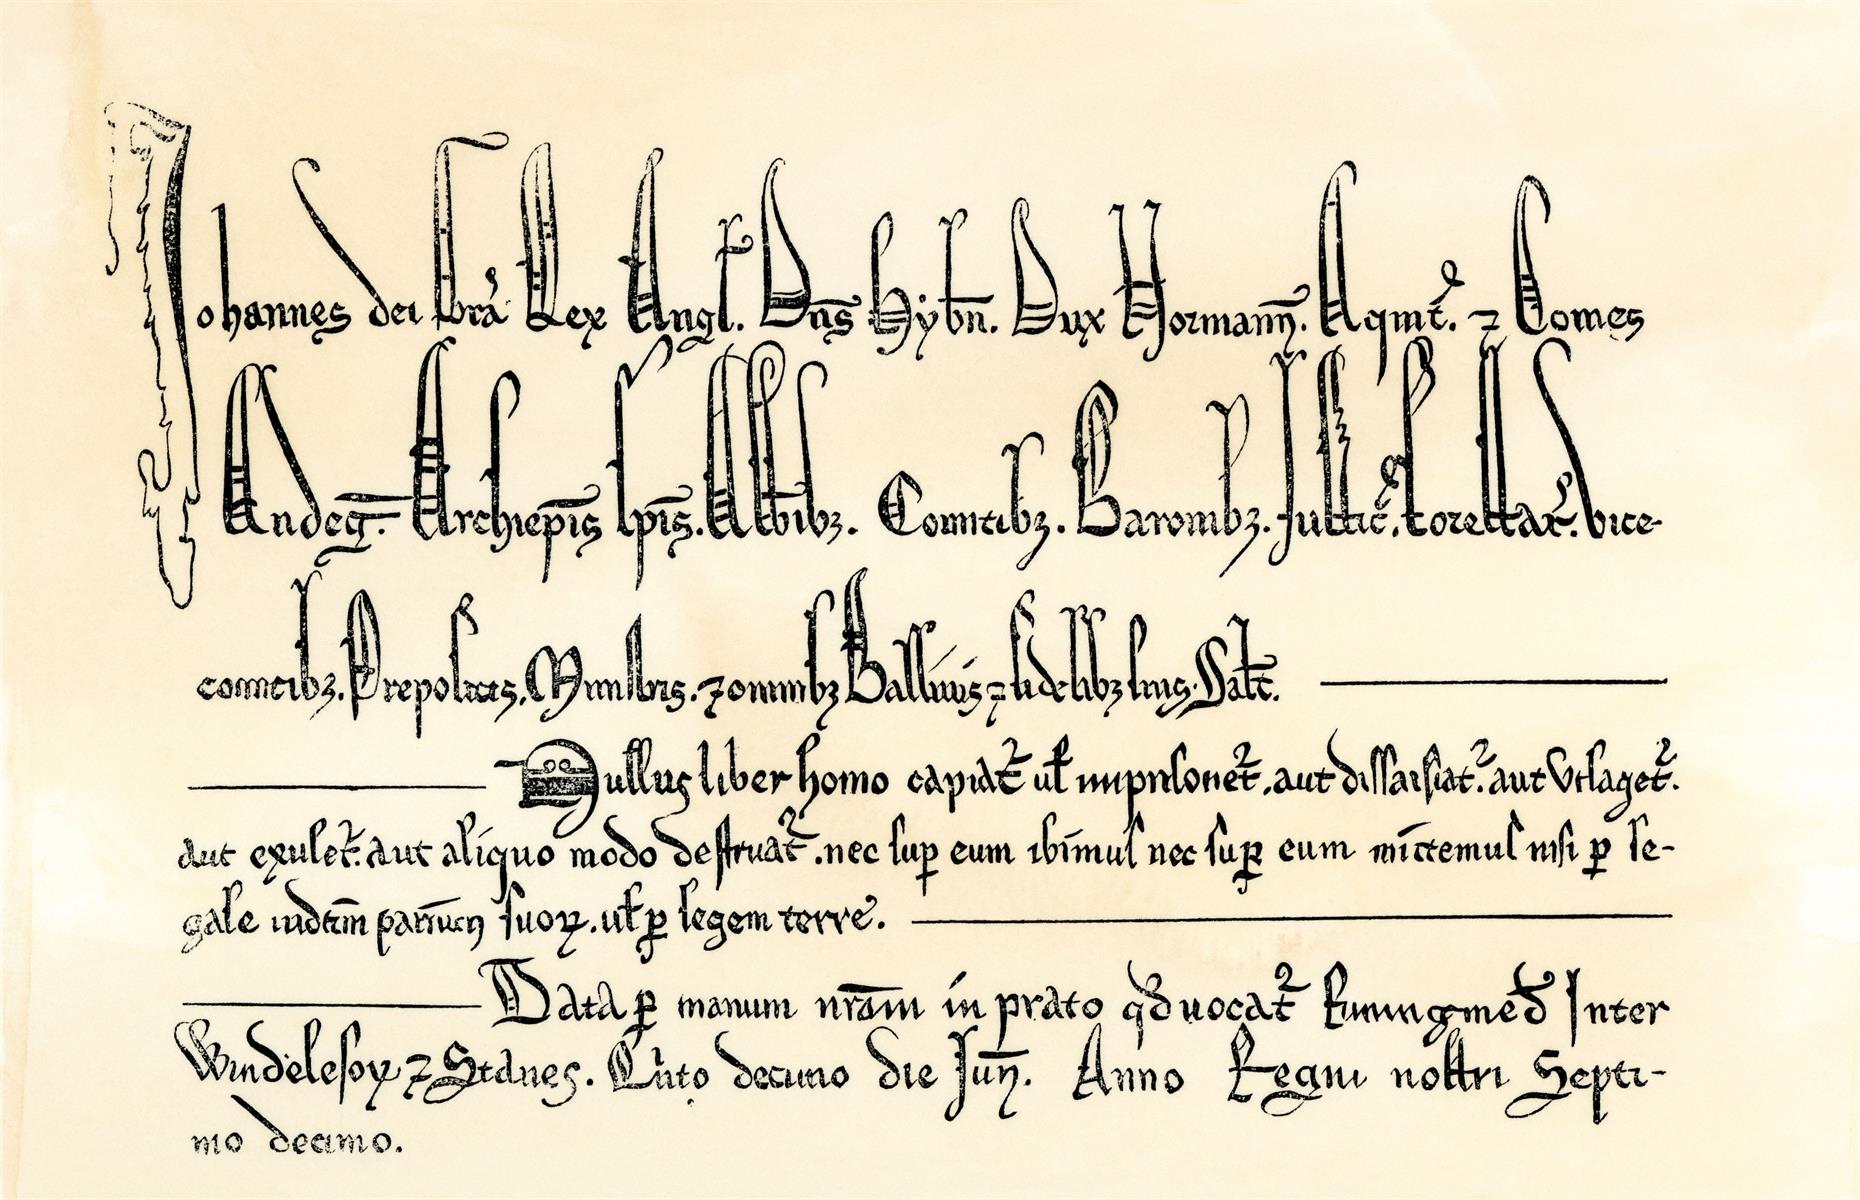 Johannes dei Grã Rex Angl. Dñs Hybñ. Dux Normañn. Aquit. ⁊ Comes
Andeg. Archiepĩs Epĩs. Abbibꝫ. Comitibꝫ. Baronibꝫ. Justic. Forestar. vice-
comitibꝫ. Prepositis. Ministris. ⁊ omnibꝫ Ballivis ⁊ fidelibꝫ suis. Salt.
Nullus liber homo capiat᷑ ul̃ imprisonet᷑. aut dissaisiat᷑. aut Utlaget᷑.
aut exulet᷑. aut aliquo modo destruat᷑. nec sup eum ibimus nec sup eum mittemus nisi ꝑ le-
gale iudim̃ parium suoꝝ. ul̃ ꝑ legem terre.
Data ꝑ manum nr̃am in prato qd̃ vocat᷑ Runingmed̃ Inter
Windelesoꝝ ⁊ Stanes. Qũto decimo die Juñ. Anno Regni nostri Septi-
mo decimo.